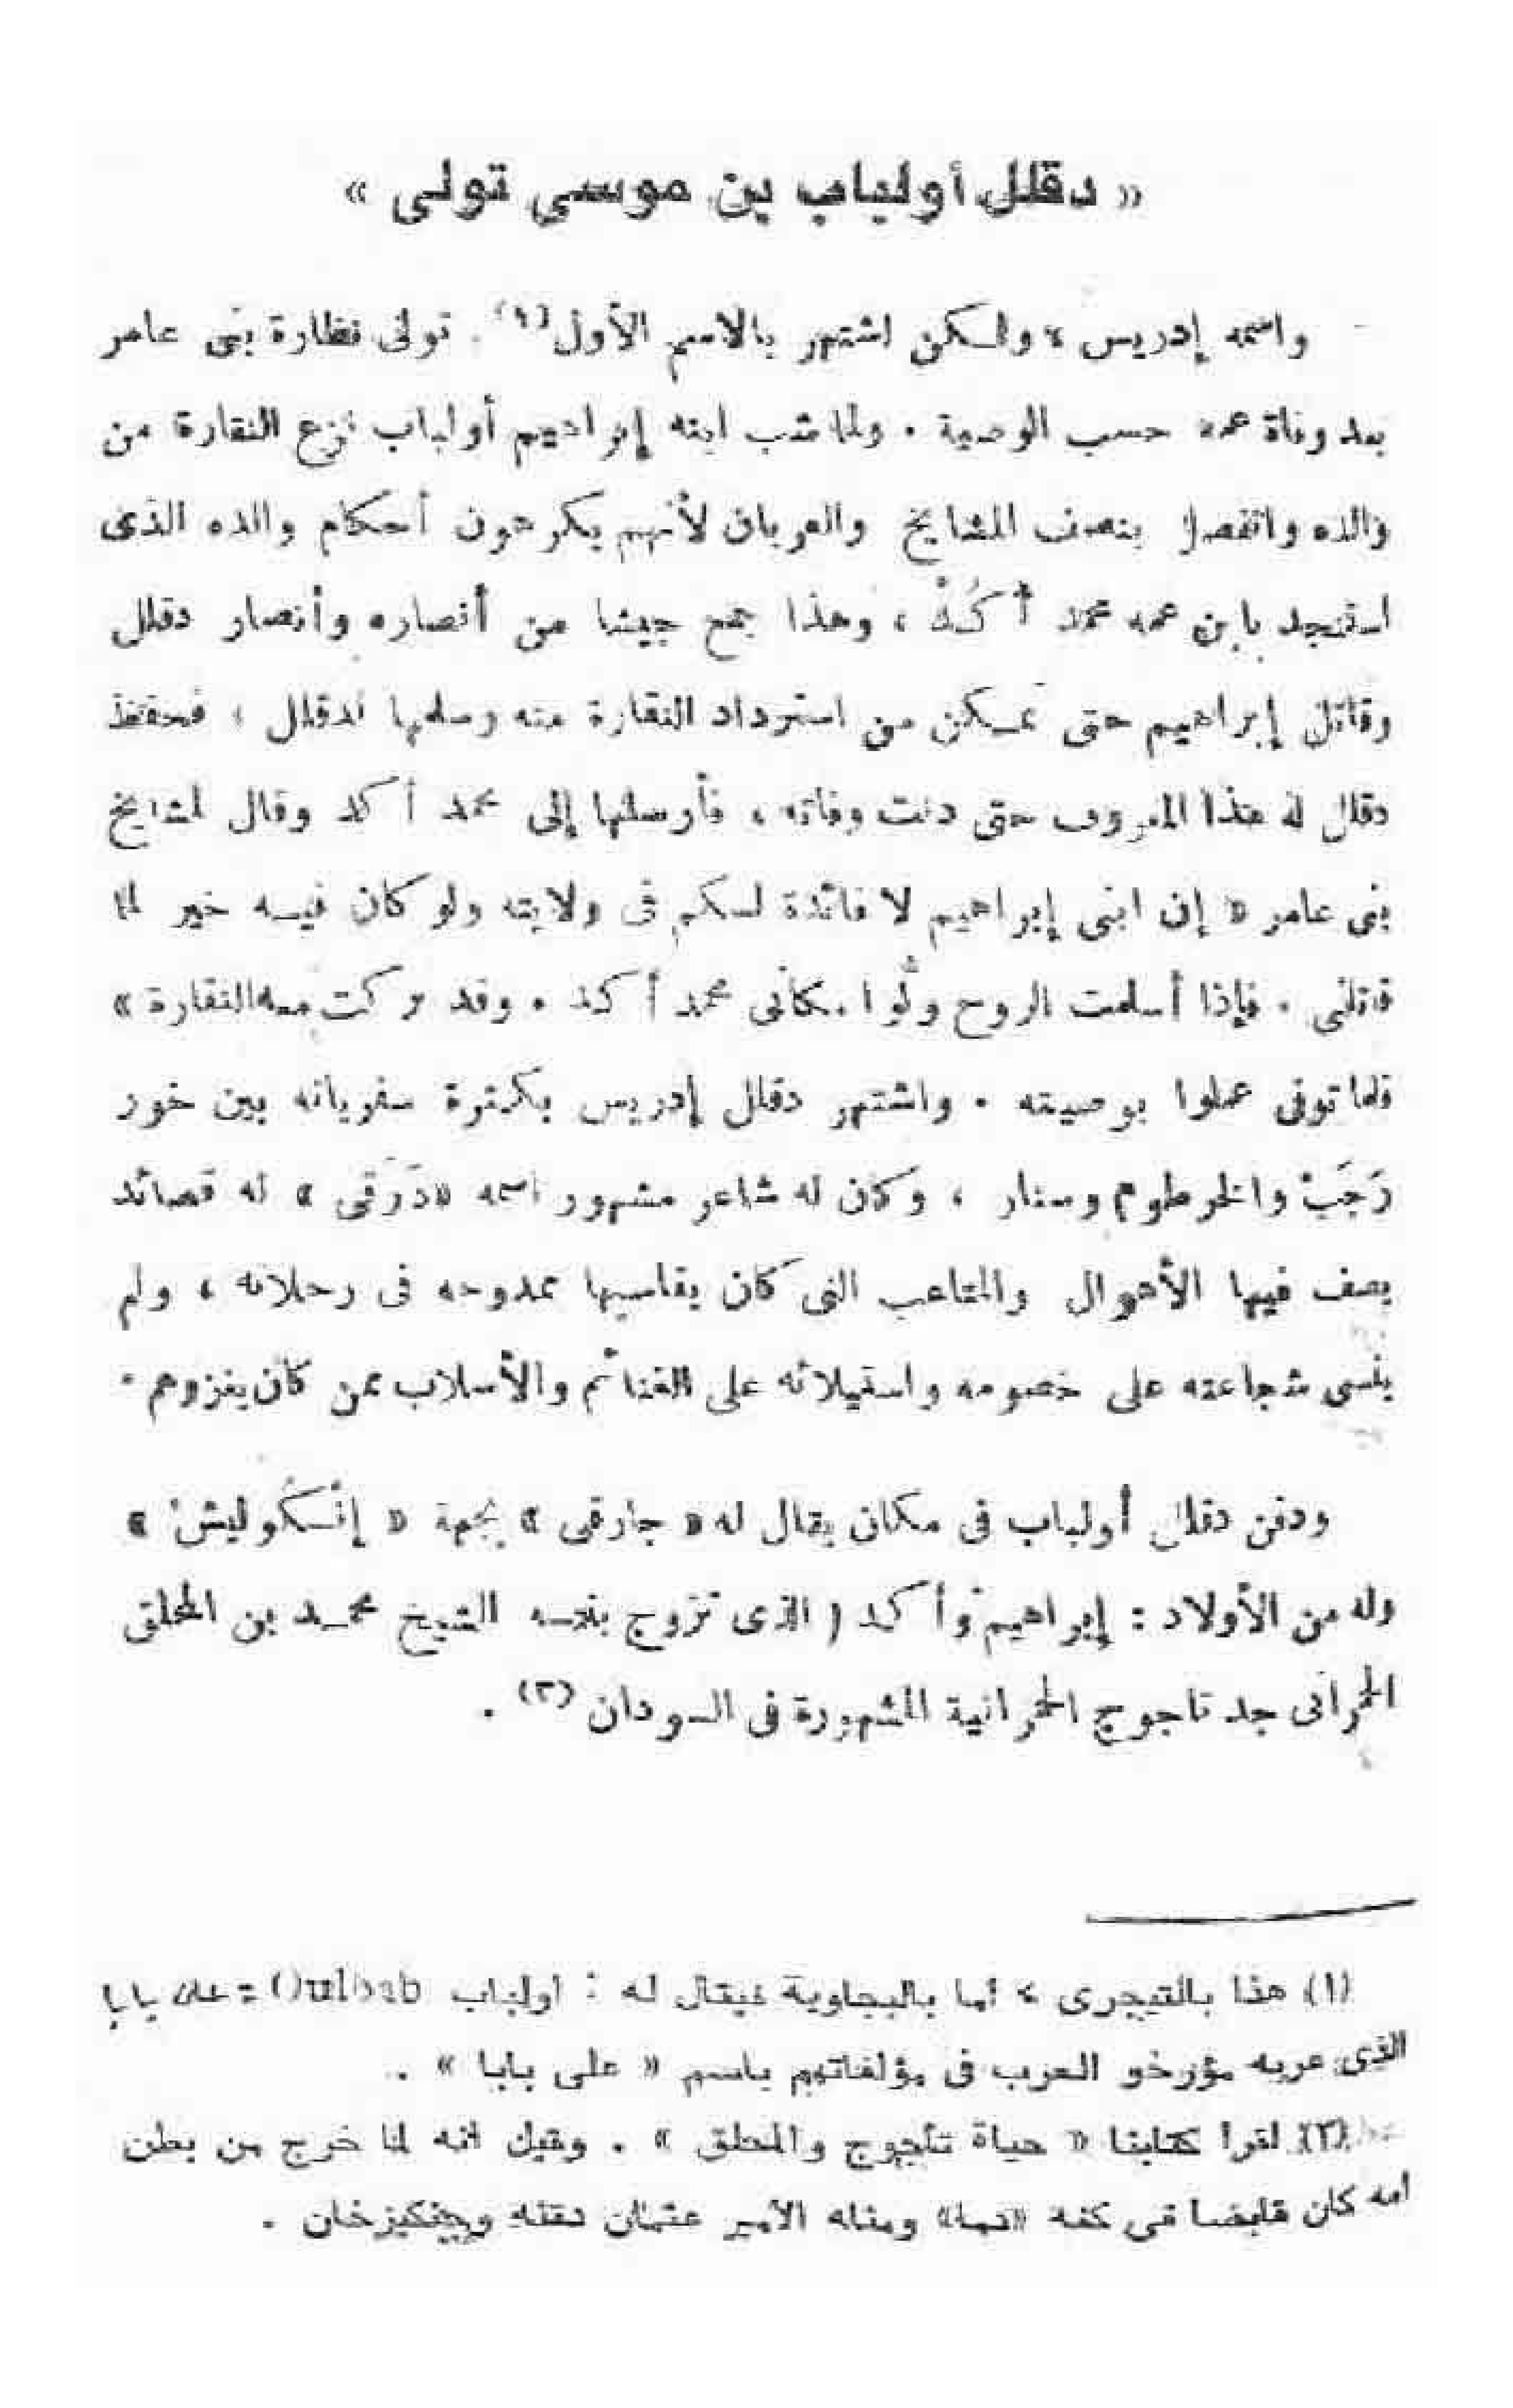 « دقلل أولباب بن موسى تولى »
واسمه إدريس ، ولكن اشتهر بالاسم الأول (١) . تولى نظارة بنى عامر
بعد وفاة عمه حسب الوصية . ولما شب ابنه إبراهيم أولباب نزع النقارة من
والده وانفصل بنصف المشايخ والعربان لأنهم يكرهون أحكام والده الذى
استنجد بابن عمه محمد أكُدْ ، وهذا جمع جيشا من أنصاره وأنصار دقلل
وقاتل إبراهيم حتى تمكن من استرداد النقارة منه وسلمها لدقلل ، فحفظ
دقلل له هذا المعروف حتى دنت وفاته ، فأرسلها إلى محمد أكد وقال لمشايخ
بنى عامر « إن ابنى إبراهيم لا فائدة لكم فى ولايته ولو كان فيه خير لما
قاتلنى . فإذا أسلمت الروح ولُّوا مكانى محمد أكد . وقد تركت معه النقارة »
فلما توفى عملوا بوصيته . واشتهر دقلل إدريس بكثرة سفرياته بين خور
رَجَبْ والخرطوم وسنار ، وكان له شاعر مشهور اسمه «دَرَقى» له قصائد
يصف فيها الأهوال والمتاعب التى كان يقاسيها ممدوحه فى رحلاته ، ولم
ينسى شجاعته على خصومه واستيلائه على الغنائم والأسلاب ممن كان يغزوهم .
ودفن دقلل أولباب فى مكان يقال له « جارقى » بجهة « إنْسكُوليشْ »
وله من الأولاد : إبراهيم وأكد ( الذى تزوج بنته الشيخ محمد بن المحلق
الحمرانى جد تاجوج الحمرانية المشهورة فى السودان (٢) .
(١) هذا بالتيجرى ، أما بالبجاوية فيقال له : اولباب Oulbab = على بابا
الذى عربه مؤرخو العرب فى مؤلفاتهم باسم « على بابا » .
(٢) اقرأ كتابنا « حياة تاجوج والمحلق » . وقيل انه لما خرج من بطن
أمه كان قابضا فى كفه «دما» ومثله الأمير عثمان دقنه وجنكيزخان .